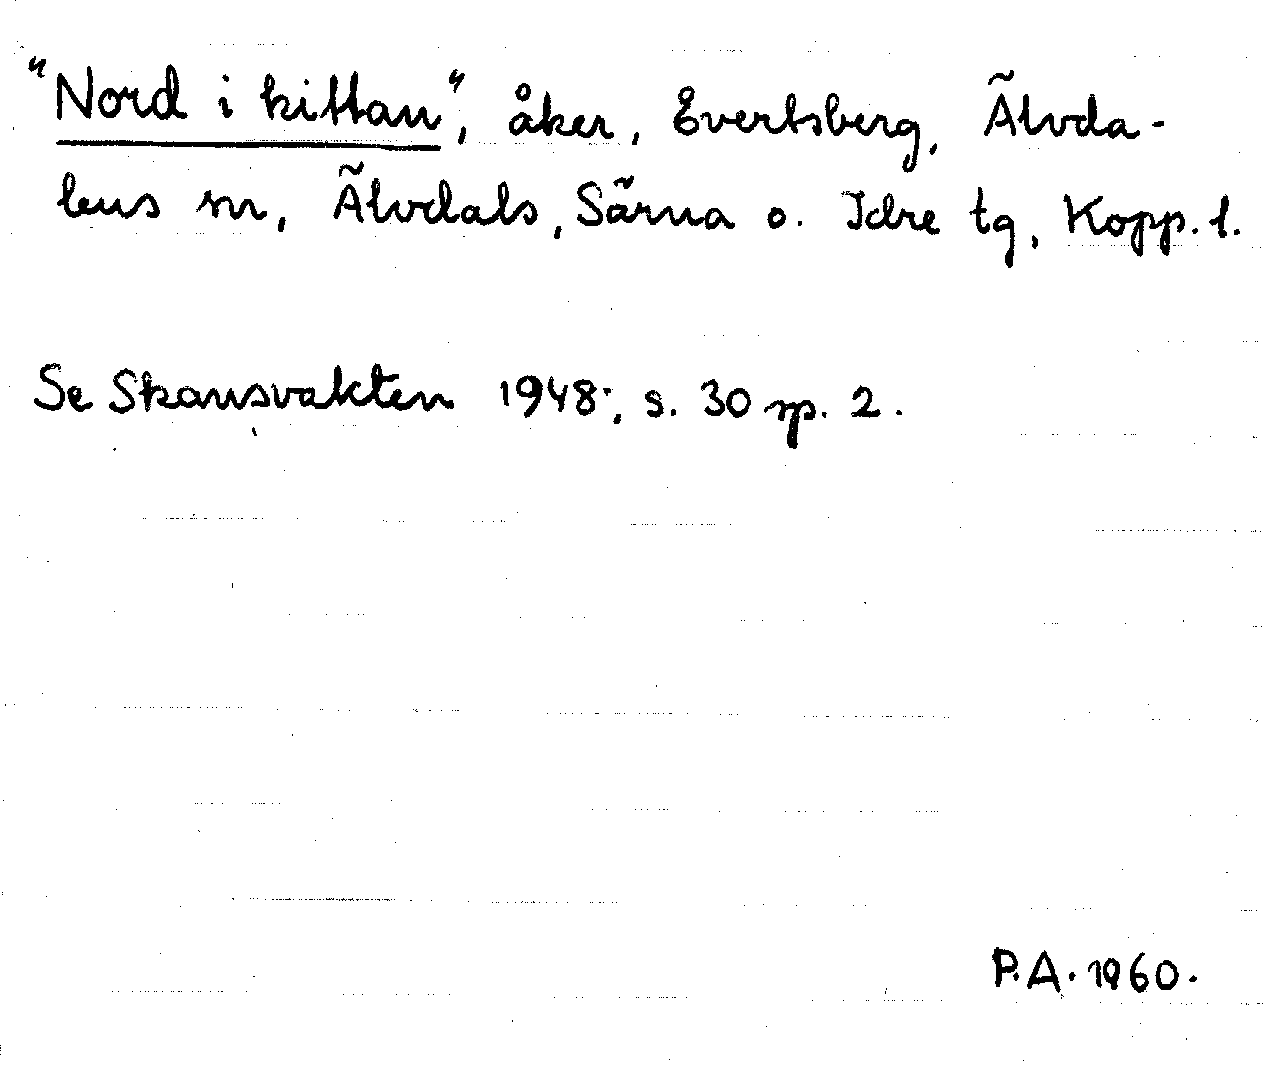 "Nord i kittan", åker, Evertsberg, Älvda-
lens sn, Älvdals, Särna o. Idre tg, Kopp. l.
Se Skansvakten 1948, s. 30 sp. 2.
P.A. 1960.